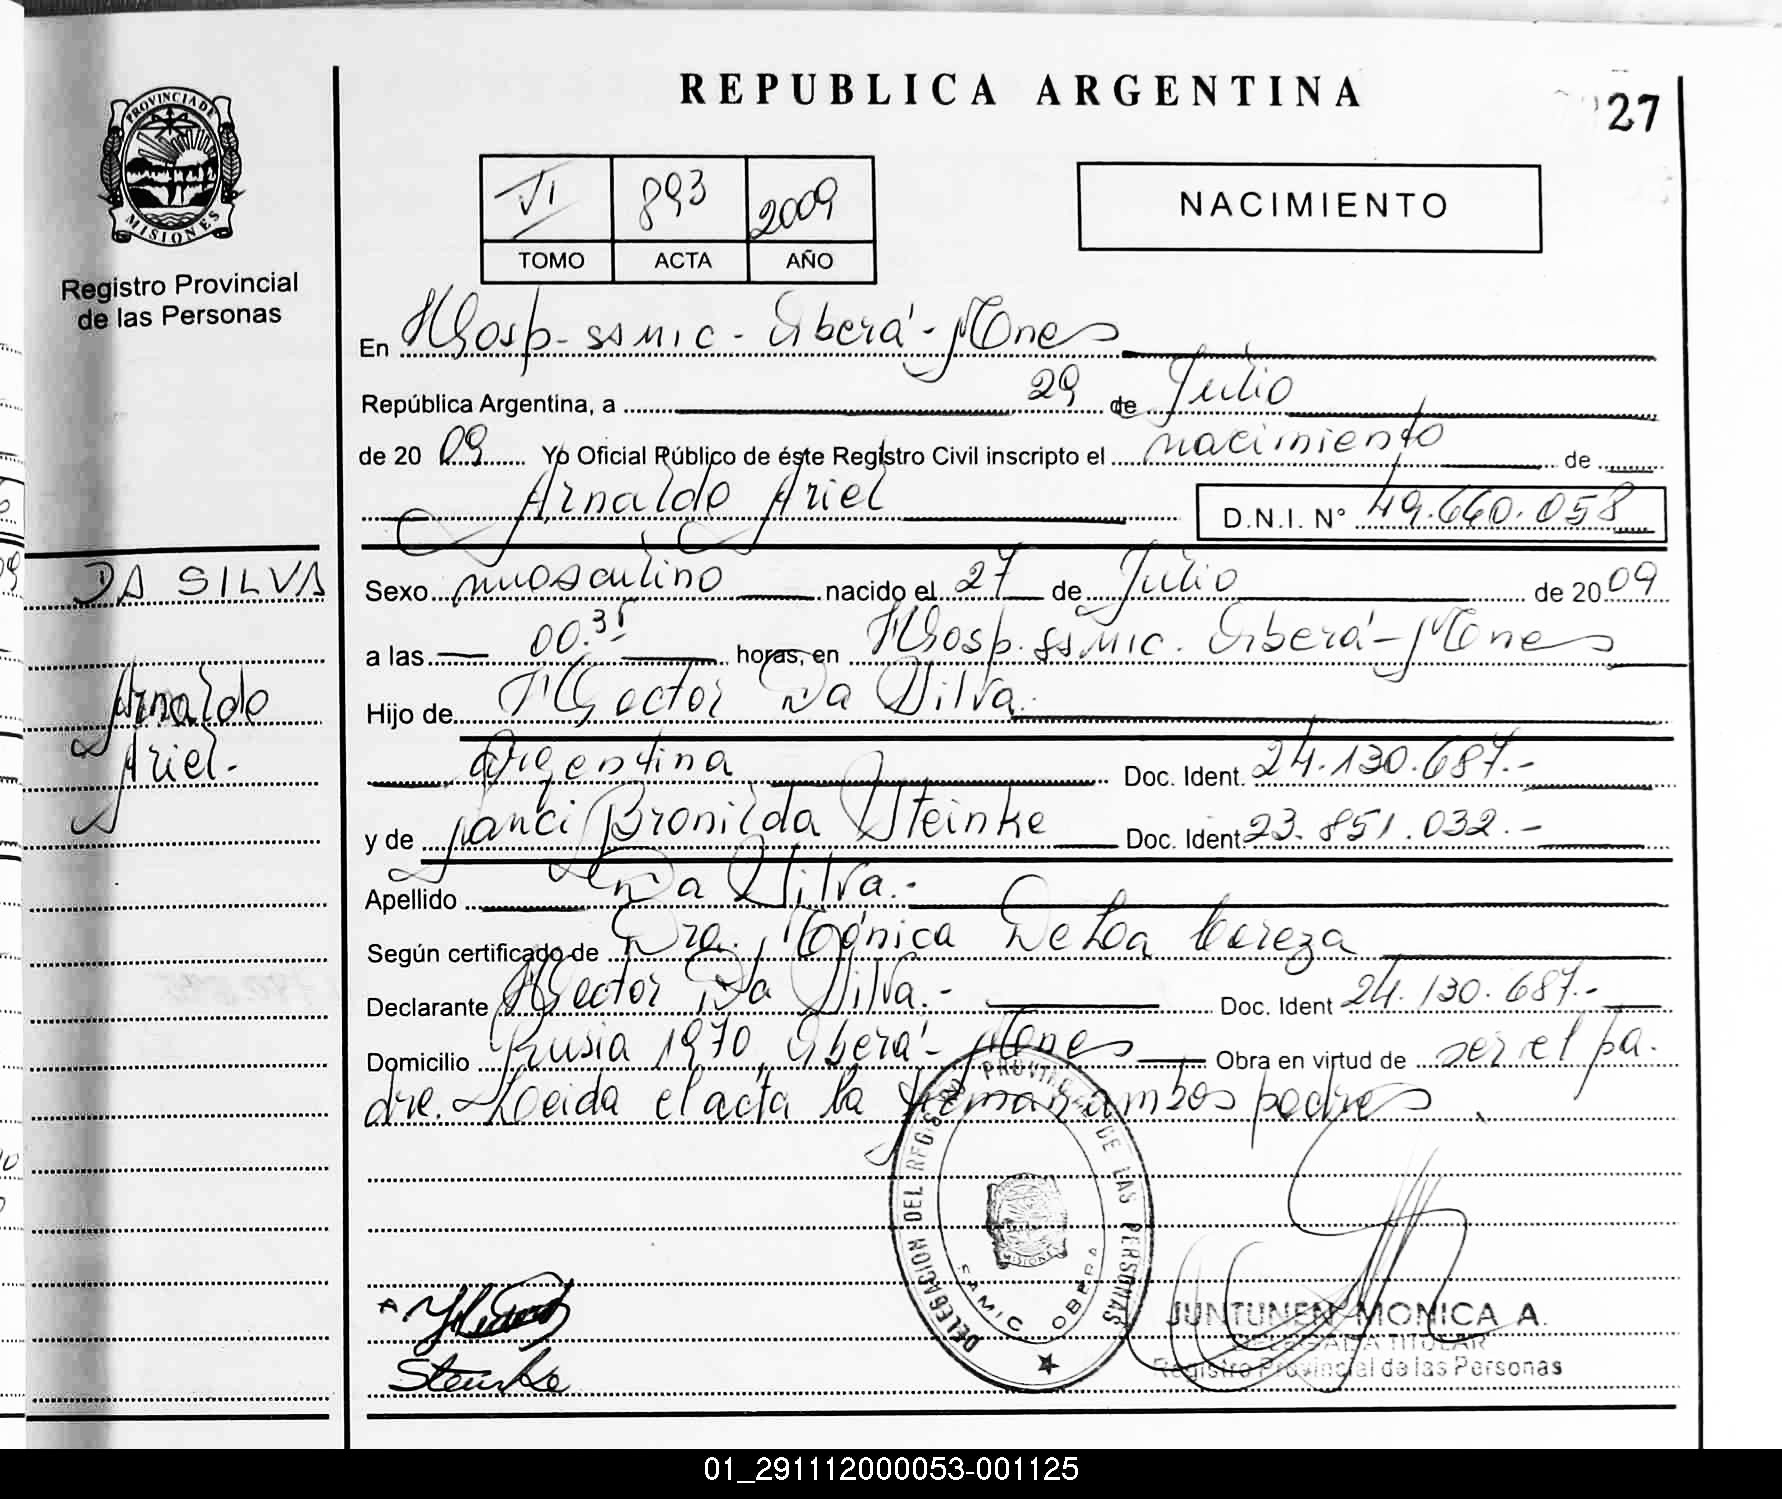 REPUBLICA ARGENTINA
27
PROVINCIA DE
MISIONES
Registro Provincial
de las Personas
VI 893 2009
TOMO ACTA AÑO
NACIMIENTO
En Hosp. SAMIC - Oberá - Mnes
República Argentina, a 29 de Julio
de 2009 Yo Oficial Público de éste Registro Civil inscripto el nacimiento de
Arnaldo Ariel D.N.I. N° 49.660.058
DA SILVA
Arnaldo
Ariel.-
Sexo masculino nacido el 27 de Julio de 2009
a las 00.35 horas, en Hosp. SAMIC. Oberá - Mnes
Hijo de Hector Da Silva.
Argentina Doc. Ident. 24.130.687.-
y de Bronilda Steinke Doc. Ident. 23.851.032.-
Apellido Da Silva.-
Según certificado de Dra. Mónica De Loa
Declarante Hector Da Silva.- Doc. Ident 24.130.687.-
Domicilio Rusia 1970, Oberá - Mnes Obra en virtud de ser el pa.
dre. Leida el acta la firman ambos padres
DELEGACION DEL REGISTRO PROVINCIAL DE LAS PERSONAS
MISIONES
SAMIC OBERA
Steinke
JUNTUNEN MONICA A.
DELEGADA TITULAR
Registro Provincial de las Personas
01_291112000053-001125